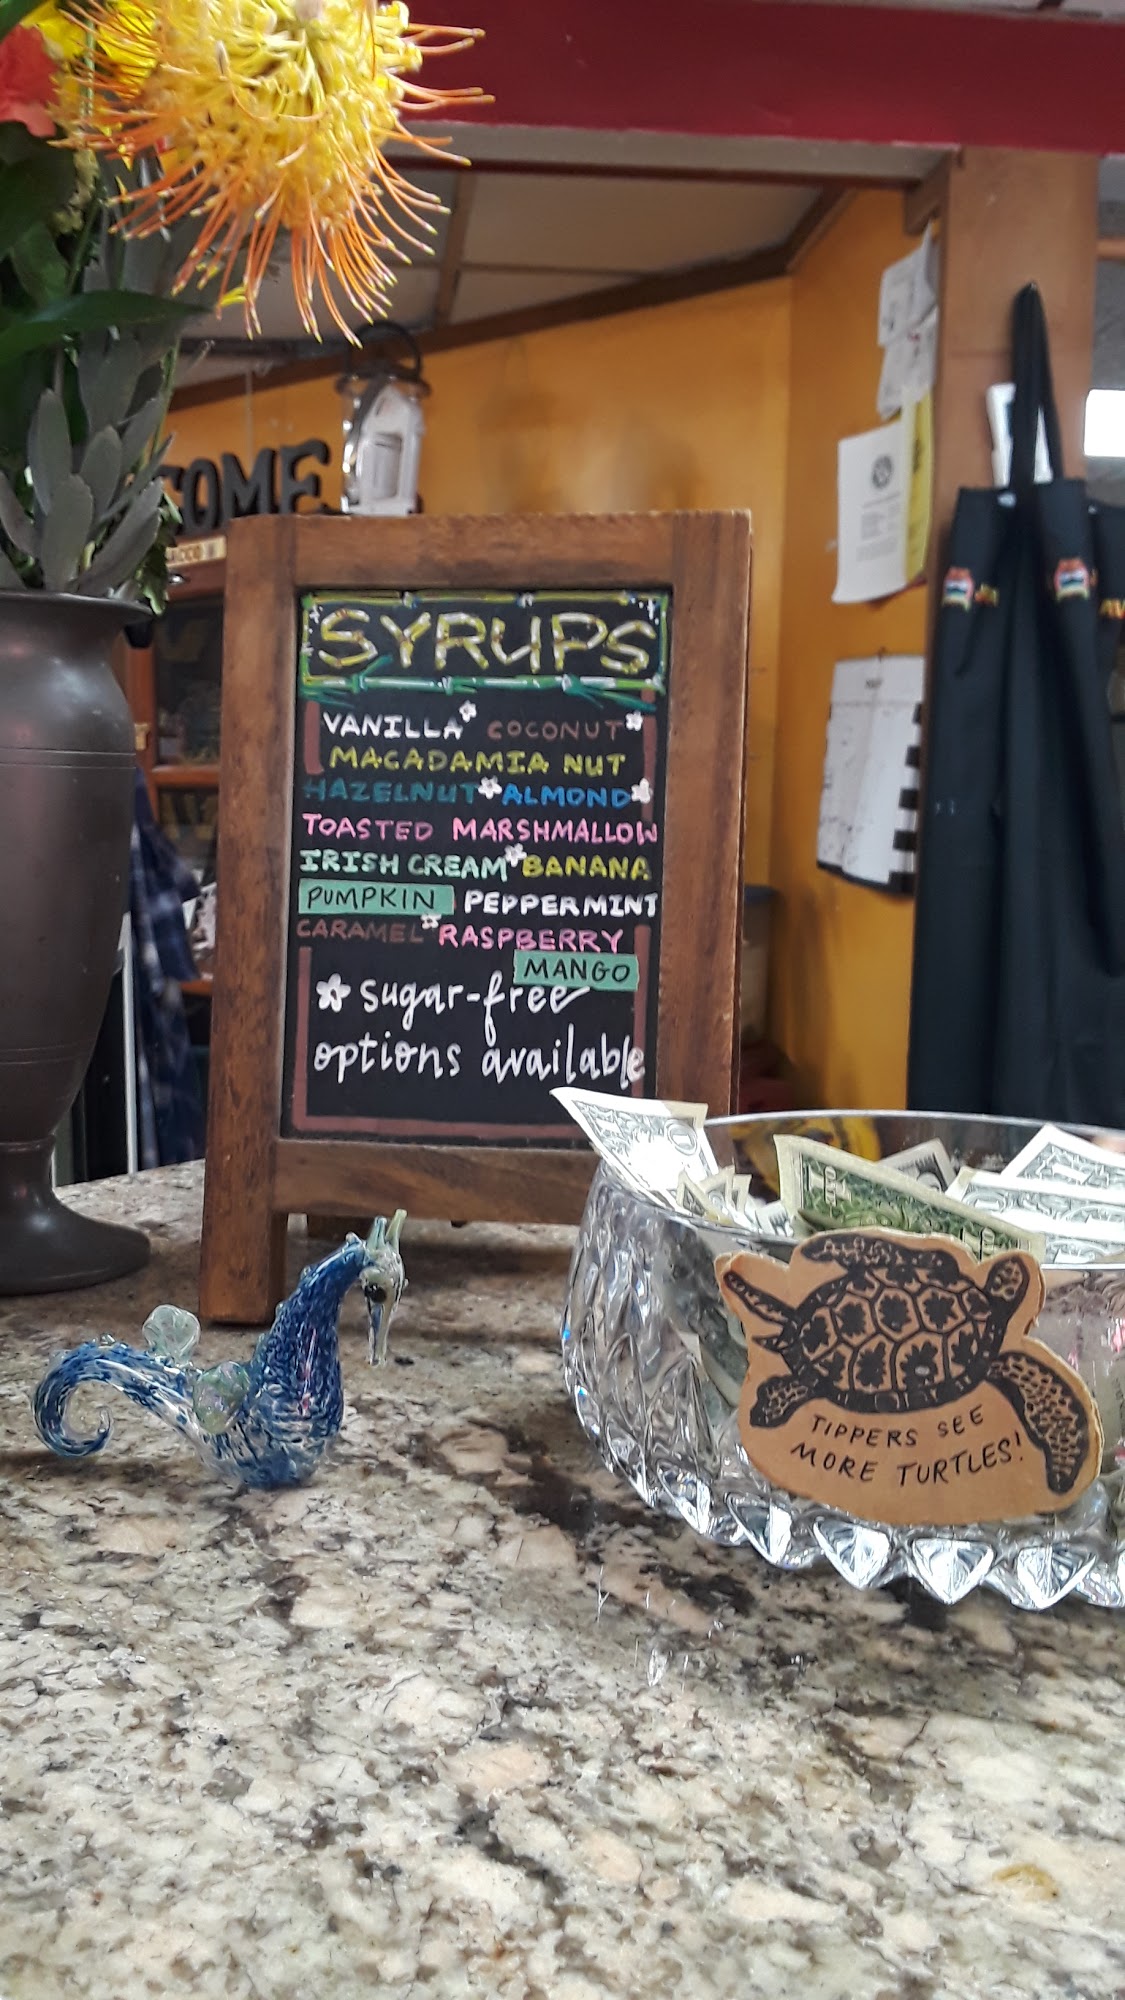 COME
SYRUPS
VANILLA COCONUT
MACADAMIA NUT
HAZELNUT ALMOND
TOASTED MARSHMALLOW
IRISH CREAM BANANA
PUMPKIN PEPPERMINT
CARAMEL RASPBERRY
MANGO
sugar-free
options available
TIPPERS SEE
MORE TURTLES!